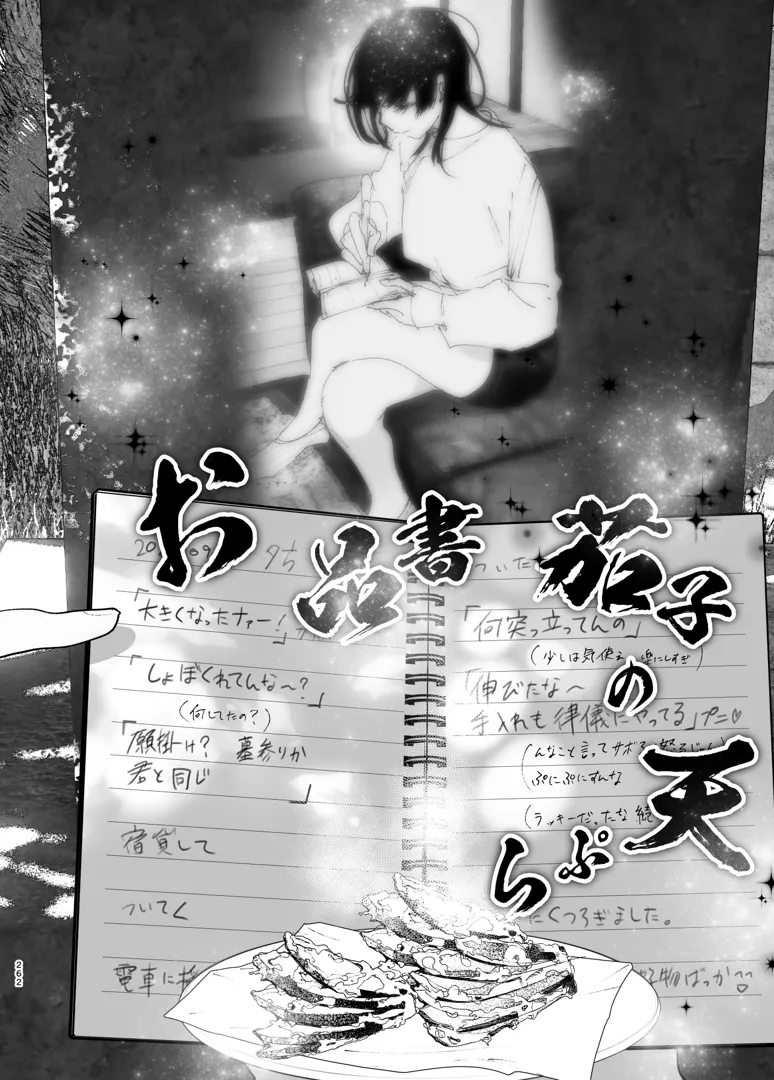 お品書
茄子の天ぷら
「何突っ立ってんの」
(少しは気使え 楽にしすぎ)
「伸びたな〜
手入れも律儀にやってる」プニ♡
(んなこと言ってサボる
ぷにぷにすんな
(ラッキーだったな 続
たくつろぎました。
物ばっか
20
09
「大きくなったナァー!」
「しょぼくれてんな〜?」
(何してたの?)
「願掛け? 墓参りか
君と同じ 」
宿貸して
ついてく
電車に
262